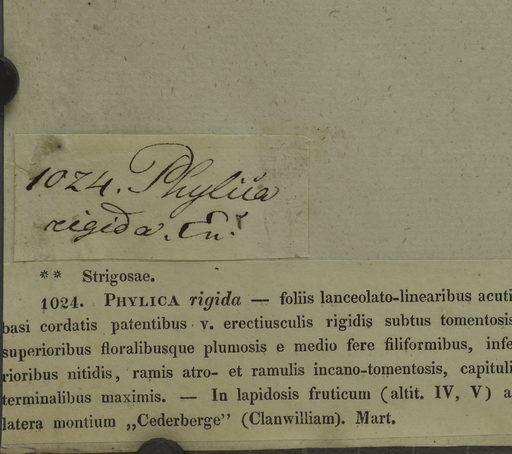 1024. Phylica
rigida. En.
** Strigosae.
1024. PHYLICA rigida — foliis lanceolato-linearibus acuti
basi cordatis patentibus v. erectiusculis rigidis subtus tomentosis
superioribus floralibusque plumosis e medio fere filiformibus, infe
rioribus nitidis, ramis atro- et ramulis incano-tomentosis, capituli
terminalibus maximis. — In lapidosis fruticum (altit. IV, V) a
latera montium „Cederberge” (Clanwilliam). Mart.